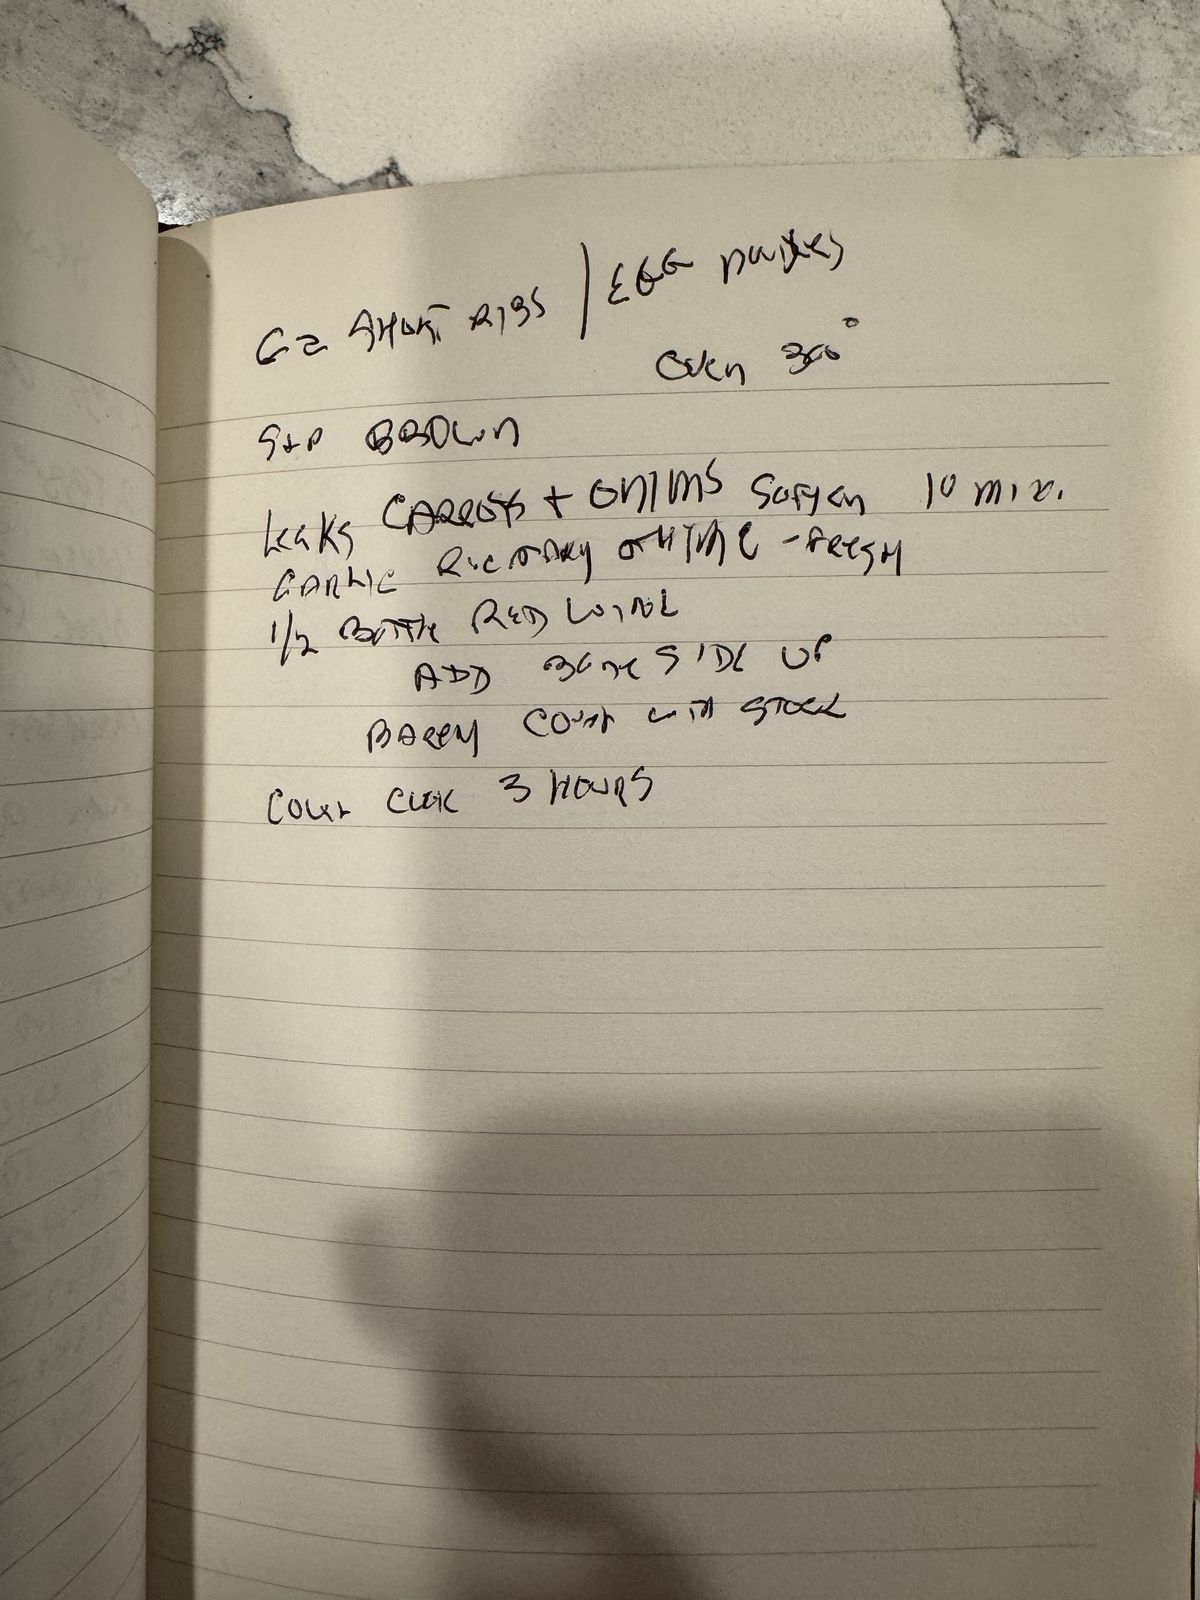 SHORT RIBS / EGG noodles
Oven 300°
S+P BROWN
Leaks CARROTS + ONIONS Soften 10 min.
GARLIC ROSEMARY THYME - FRESH
1/2 BOTTLE RED WINE
ADD BONE SIDE UP
BARELY COVER WITH STOCK
COVER COOK 3 HOURS